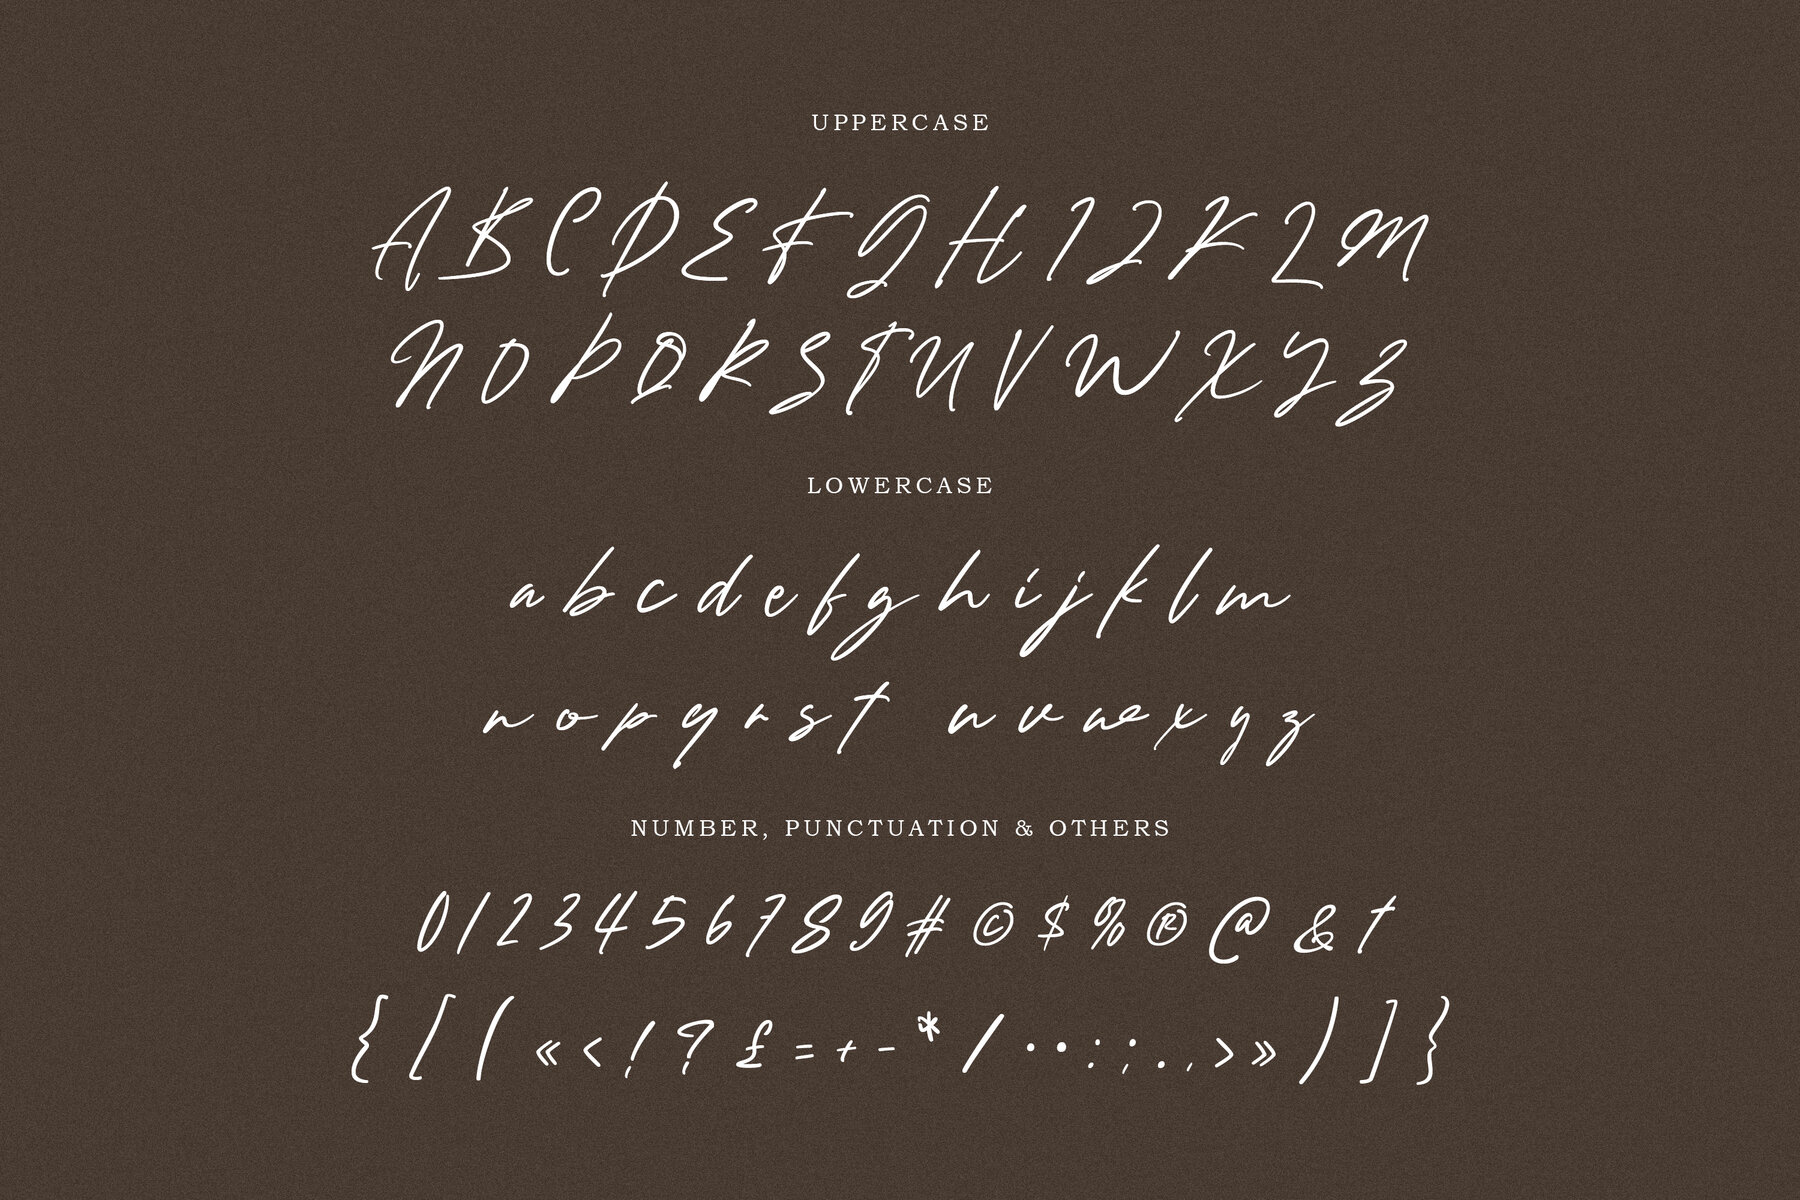 UPPERCASE
A B C D E F G H I J K L M
N O P Q R S T U V W X Y Z
LOWERCASE
a b c d e f g h i j k l m
n o p q r s t u v w x y z
NUMBER, PUNCTUATION & OTHERS
0 1 2 3 4 5 6 7 8 9 # © $ % ® @ & †
{ [ ( « < ! ? £ = + - * / · • : ; . , > » ) ] }